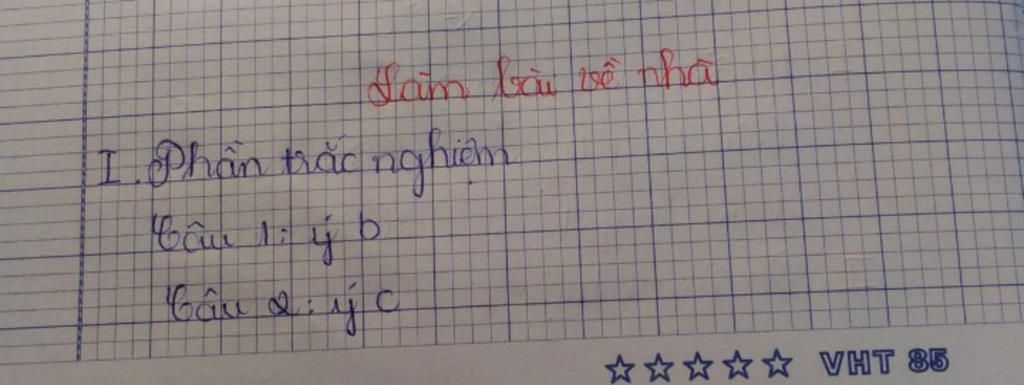 Làm bài về nhà
I. Phần trắc nghiệm
Câu 1: ý b
Câu 2: ý c
VHT 85